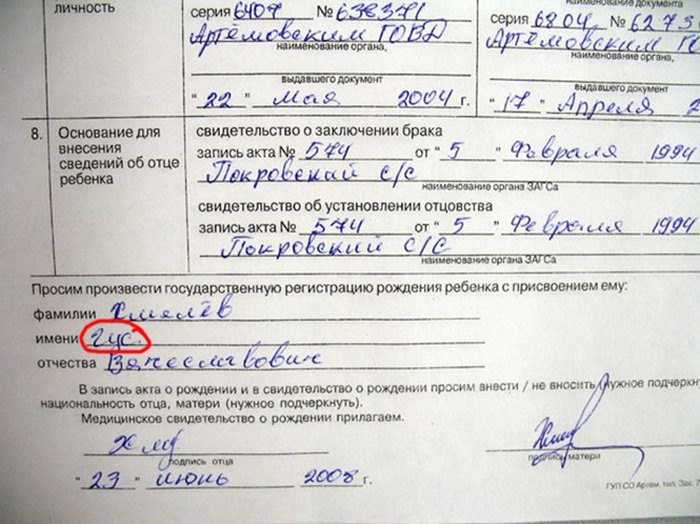 личность
наименование документа
серия 6407 № 638371
6804 № 6273
Артёмовским ГОВД
Артёмовским ГО
наименование органа,
наименование органа,
выдавшего документ
выдавшего документ
“ 22 ” Мая 2004 г.
“ 17 ” Апреля 2
8.
Основание для внесения сведений об отце ребенка
свидетельство о заключении брака
запись акта № 574 от “ 5 ” Февраля 1994
Покровский с/с
наименование органа ЗАГСа
свидетельство об установлении отцовства
запись акта № 574 от “ 5 ” Февраля 1994
Покровский с/с
наименование органа ЗАГСа
Просим произвести государственную регистрацию рождения ребенка с присвоением ему:
фамилии Хмелёв
имени Гус
отчества Вячеславович
В запись акта о рождении и в свидетельство о рождении просим внести / не вносить (нужное подчеркн
национальность отца, матери (нужное подчеркнуть).
Медицинское свидетельство о рождении прилагаем.
подпись отца
подпись матери
“ 23 ” июнь 2008 г.
ГУП СО Артем. тип. Зак. 7